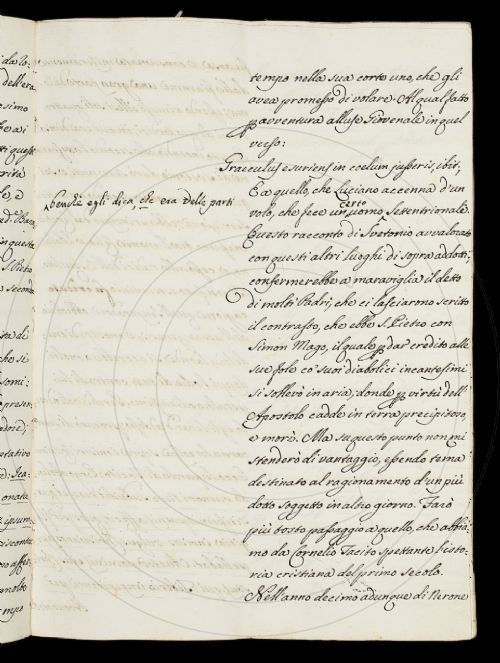 tempo nella sua corte uno, che gli
avea promesso di volare. Al qual fatto
p avventura alluse Giovenale in quel
verso:
Graeculus esuriens in coelum jusseris, ibit;
E a quello, che Luciano accenna d'un
volo, che fece un certo uomo Settentrionale.
Benchè egli dica, che era delle parti
Questo racconto di Svetonio avvalorato
con questi altri luoghi di sopra addotti,
confermerebbe a maraviglia il detto
di molti Padri, che ci lasciarono scritto
il contrasto, che ebbe S. Pietro con
Simon Mago, il quale p dar credito alle
sue fole co' suoi diabolici incantesimi
si sollevò in aria; donde p virtù dell'
Apostolo cadde in terra precipitono,
e morì. Ma su questo punto non mi
stenderò di vantaggio, essendo tema
destinato al ragionamento d'un più
dotto soggetto in altro giorno. Farò
più tosto passaggio a quello, che abbia-
mo da Cornelio Tacito spettante l'isto-
ria cristiana del primo secolo.
Nell'anno decimo adunque di Nerone